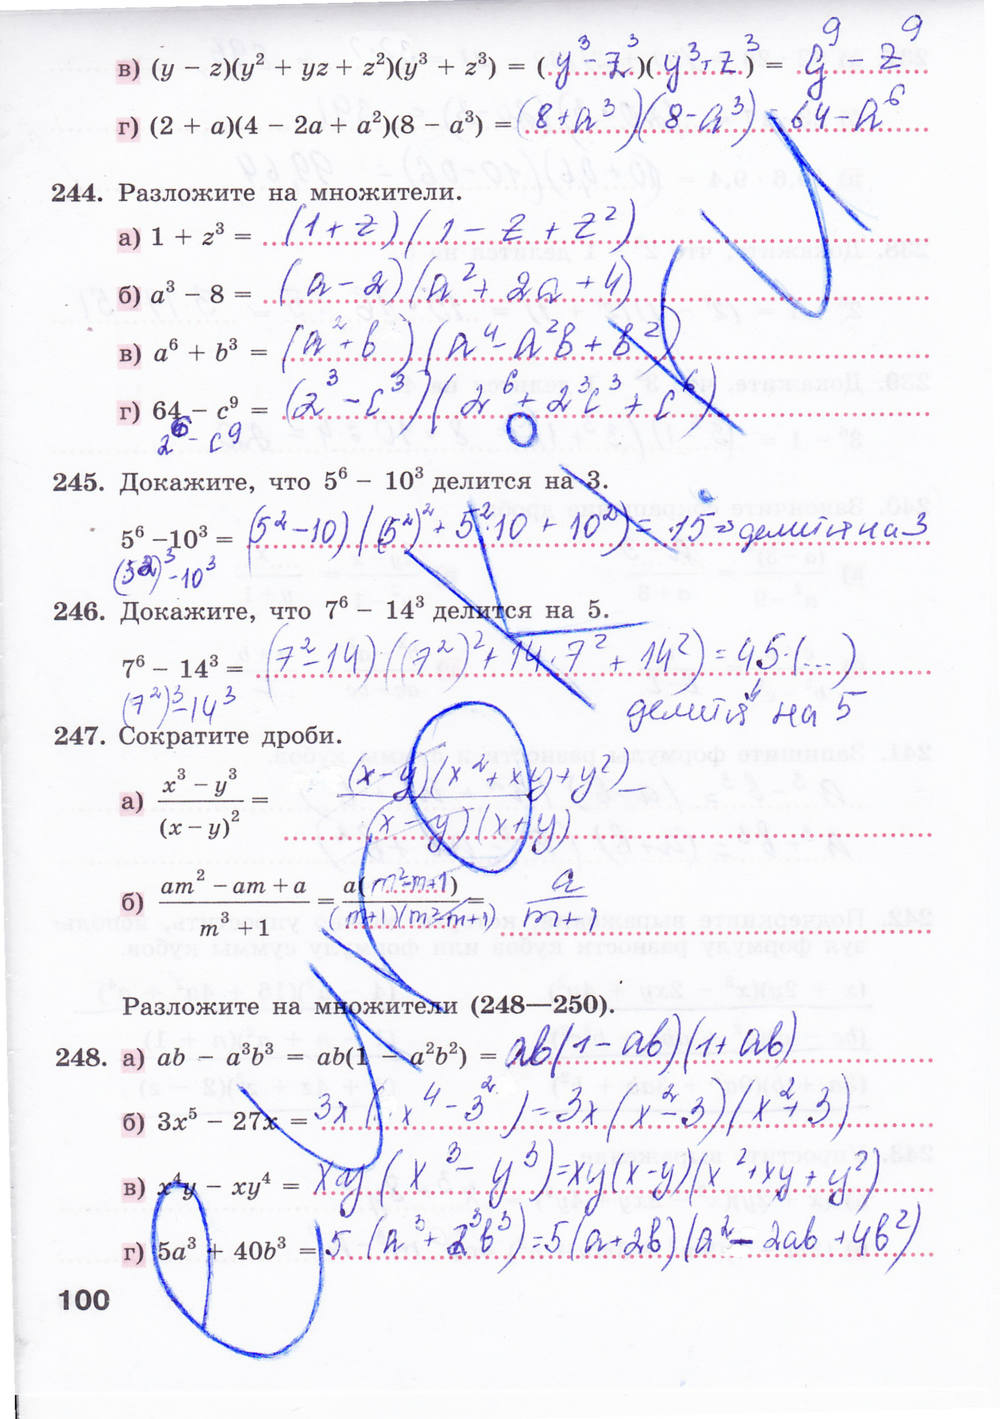 в) (y − z)(y² + yz + z²)(y³ + z³) = (y³ − z³)(y³ + z³) = y⁹ − z⁹
г) (2 + a)(4 − 2a + a²)(8 − a³) = (8 + a³)(8 − a³) = 64 − a⁶
244. Разложите на множители.
а) 1 + z³ = (1 + z)(1 − z + z²)
б) a³ − 8 = (a − 2)(a² + 2a + 4)
в) a⁶ + b³ = (a² + b)(a⁴ − a²b + b²)
г) 64 − c⁹ = (2³ − c³)(2⁶ + 2³c³ + c⁶)
2⁶ − c⁹
245. Докажите, что 5⁶ − 10³ делится на 3.
5⁶ − 10³ = (5² − 10)((5²)² + 5²·10 + 10²) = 15 ⇒ делится на 3
(5²)³ − 10³
246. Докажите, что 7⁶ − 14³ делится на 5.
7⁶ − 14³ = (7² − 14)((7²)² + 14·7² + 14²) = 45·(...)
(7²)³ − 14³ делится на 5
247. Сократите дроби.
а) (x³ − y³)/(x − y)² = (x − y)(x² + xy + y²)/(x − y)(x + y)
б) (am² − am + a)/(m³ + 1) = a(m² − m + 1)/(m + 1)(m² − m + 1) = a/(m + 1)
Разложите на множители (248—250).
248. а) ab − a³b³ = ab(1 − a²b²) = ab(1 − ab)(1 + ab)
б) 3x⁵ − 27x = 3x(x⁴ − 3²) = 3x(x² − 3)(x² + 3)
в) x⁴y − xy⁴ = xy(x³ − y³) = xy(x − y)(x² + xy + y²)
г) 5a³ + 40b³ = 5(a³ + 2³b³) = 5(a + 2b)(a² − 2ab + 4b²)
100